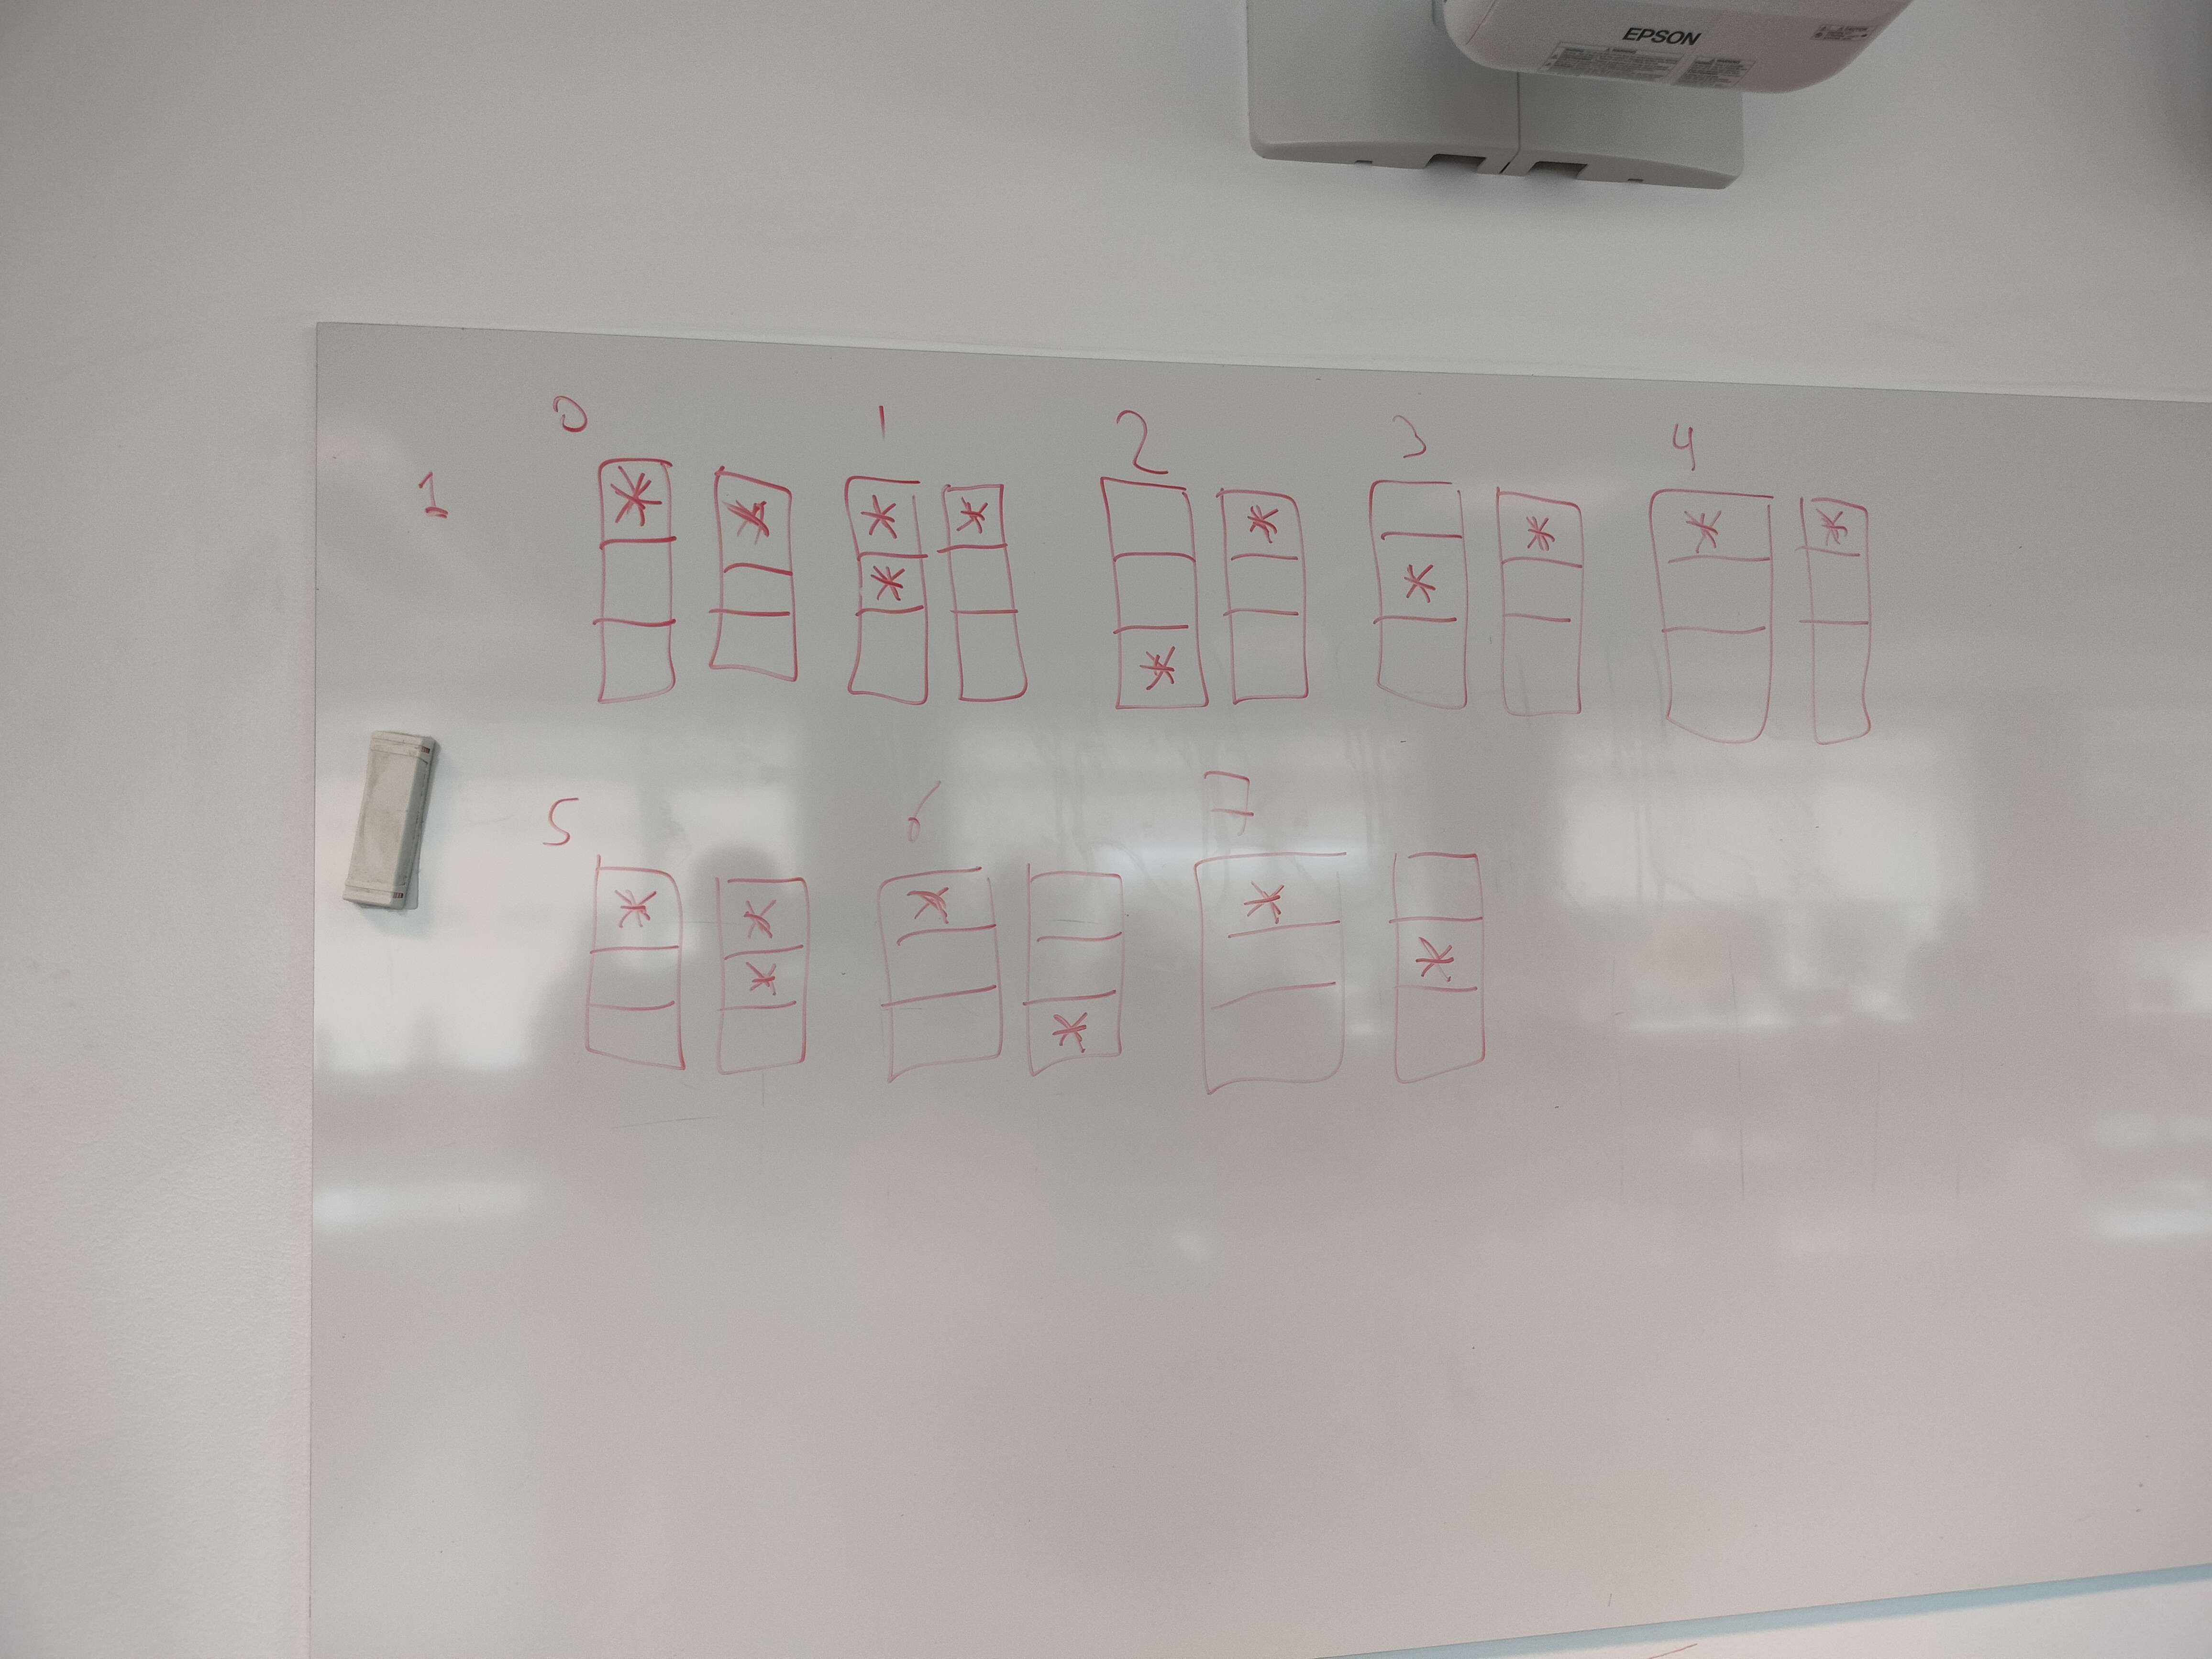 EPSON
0 1 2 3 4
1
* * * * * * *
* *
*
5 6 7
* * * *
* *
*